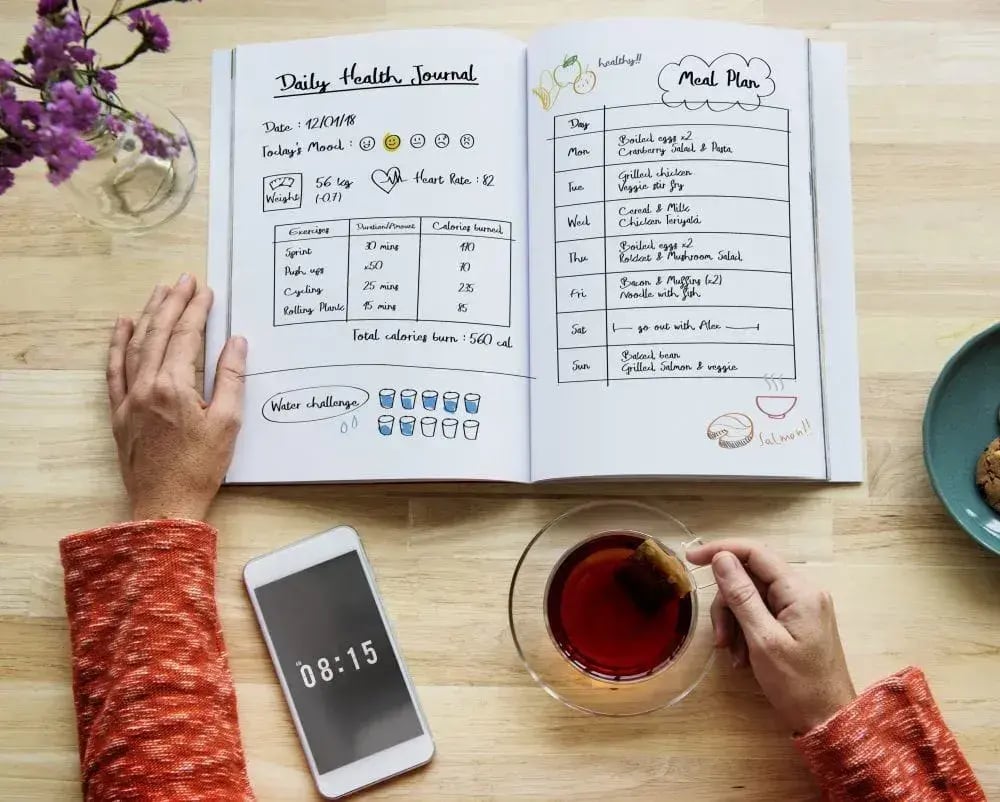 Daily Health Journal
Date : 12/01/18
Today's Mood :
Weight
56 kg
(-0.7)
Heart Rate : 82
Exercises Duration/Amount Calories burned
Sprint 30 mins 170
Push ups x50 70
Cycling 25 mins 235
Rolling Plank 15 mins 85
Total calories burn : 560 cal
Water challenge
healthy!!
Meal Plan
Day
Mon Boiled eggs x2
Cranberry Salad & Pasta
Tue Grilled chicken
Veggie stir fry
Wed Cereal & Milk
Chicken Teriyaki
Thu Boiled eggs x2
Rocket & Mushroom Salad
Fri Bacon & Muffins (x2)
Noodle with fish
Sat go out with Alex
Sun Baked bean
Grilled Salmon & veggie
Salmon!!
08:15